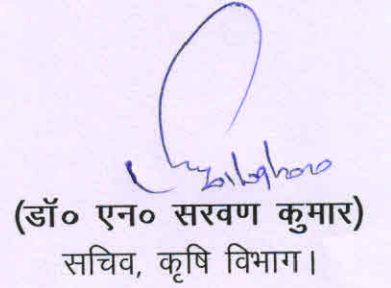 (डॉ० एन० सरवण कुमार)
सचिव, कृषि विभाग।